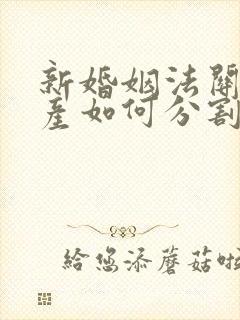 新婚姻法關
產如何分割
給您添蘑菇啦